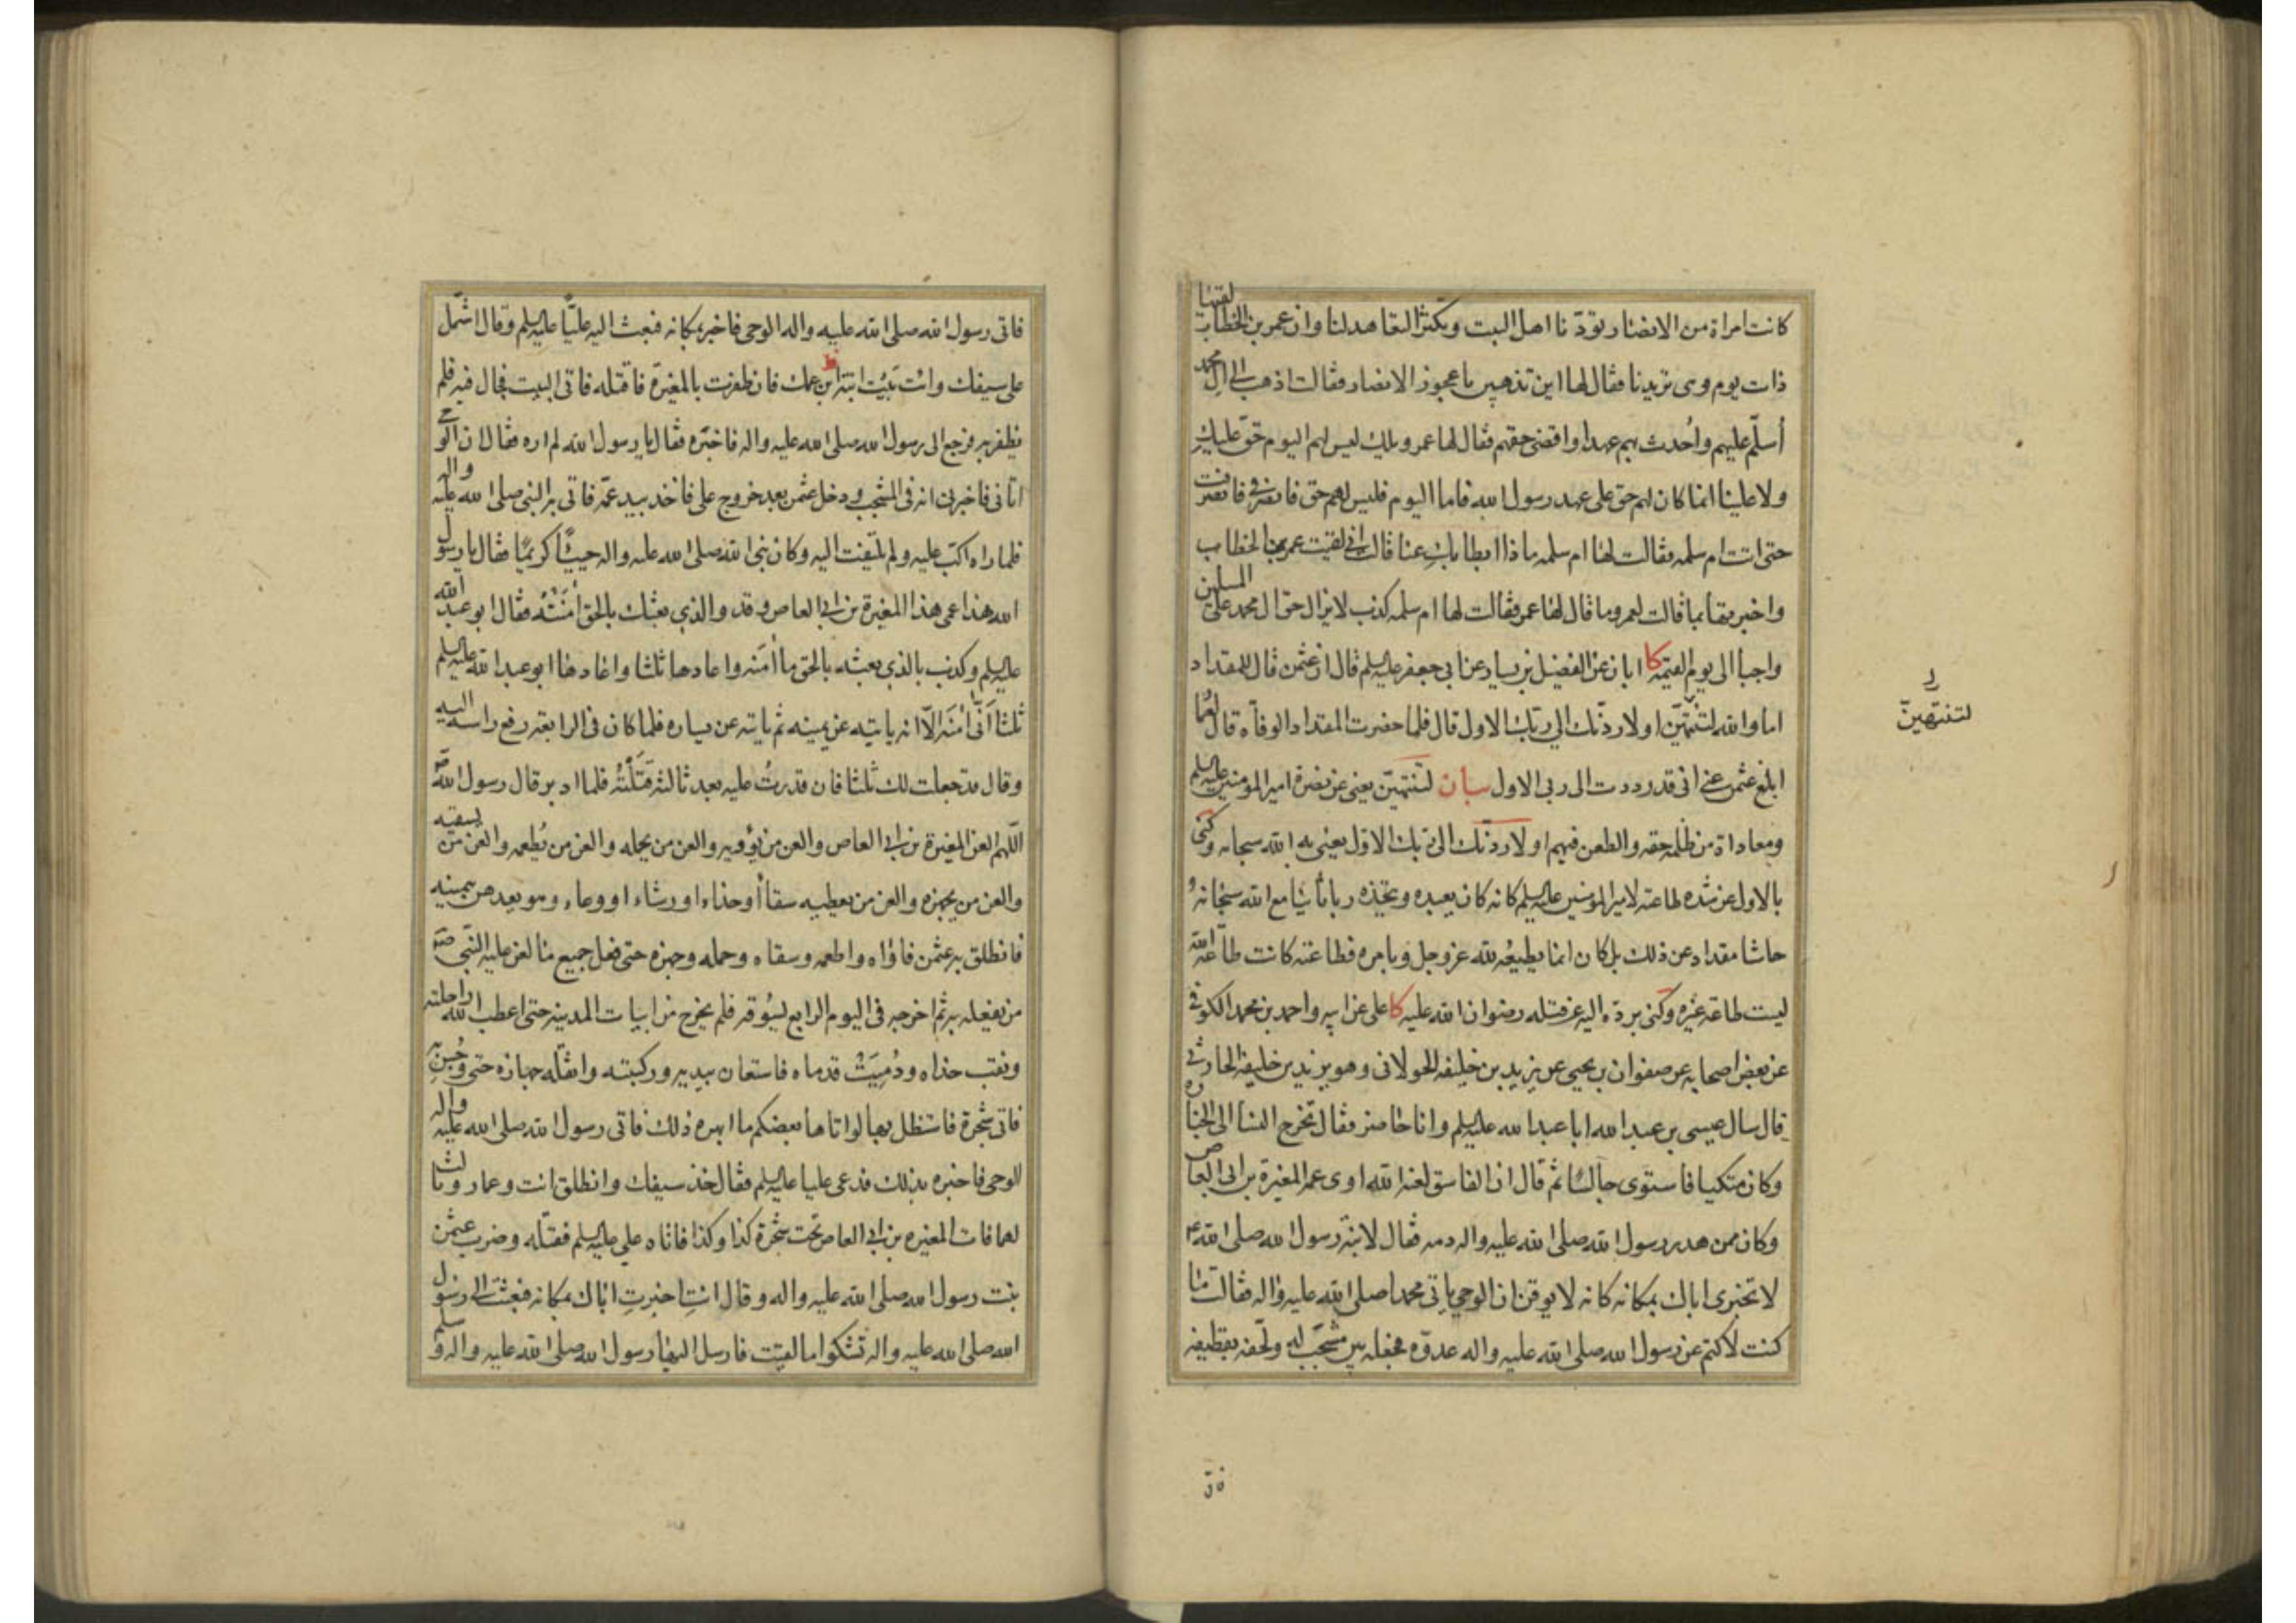 كانت امراة من الانصار تودّنا اهل البيت وتكثر التعاهد لنا وان عمر بن الخطاب لقيها
ذات يوم وهى تريدنا فقال لها اين تذهبين يا عجوز الانصار فقالت اذهب الى ال محمد
أسلّم عليهم واُحدث بهم عهدا واقضى حقهم فقال لها عمر ويلك ليس لهم اليوم حقّ عليكِ
ولا علينا انما كان لهم حق على عهد رسول الله فاما اليوم فليس لهم حق فانصرفى فانصرفت
حتى اتت ام سلمه فقالت لها ام سلمه ماذا ابطا بكِ عنا قالت انى لقيت عمر بن الخطاب
واخبرتها بما قالت لعمر وما قال لها عمر فقالت لها ام سلمه كذب لا يزال حق ال محمد على المسلمين
واجبا الى يوم القيمه كا ابان عن الفضيل بن يسار عن ابى جعفر عليه السلم قال ان عثمن قال للمقداد
اما والله لتنتهينّ او لاردنّك الى ربّك الاول قال فلما حضرت المقداد الوفاه قال لعمار
ابلغ عثمن عنى انى قد رددت الى ربى الاول بيان لتنتهينّ يعنى عن نصرة امير المومنين عليه السلم
ومعاداة من ظلمه حقه والطعن فيهم او لاردنّك الى ربك الاوّل يعنى به الله سبحانه وكنى
بالاول عن شده طاعته لامير المومنين عليه السلم كانه كان يعبده ويتخذه ربا ثانيا مع الله سبحانه و
حاشا مقداد عن ذلك بل كان انما يطيعُه لله عز وجل وبامره فطاعته كانت طاعة الله
ليست طاعة غيره وكنى بردّه اليه عن قتله رضوان الله عليه كا على عن ابيه واحمد بن محمد الكوفى
عن بعض اصحابه عن صفوان بن يحيى عن يزيد بن خليفه الخولانى وهو يزيد بن خليفه الحارثى
قال سال عيسى بن عبد الله ابا عبد الله عليه السلم وانا حاضر فقال تخرج النسا الى الجنازه
وكان متكيا فاستوى جالسًا ثم قال ان الفاسق لعنه الله اوى عمه المغيرة بن ابى العاص
وكان ممن هدر رسول الله صلى الله عليه واله دمه فقال لابنة رسول الله صلى الله
لا تخبرى اباك بمكانه كانه لا يوقن ان الوحي ياتى محمدا صلى الله عليه واله فقالت ما
كنت لاكتم عن رسول الله صلى الله عليه واله عدوّه فجعله بين مشجب له ولحّفه بقطيفه
لتنتهينّ
فاتى
فاتى رسول الله صلى الله عليه واله الوحى فاخبره بمكانه فبعث اليه عليّا عليه السلم وقال اشتمل
على سيفك وائت بَيْت ابنة ابن عمك فان ظفرت بالمغيرة فاقتله فاتى البيت فجال فيه فلم
يظفر به فرجع الى رسول الله صلى الله عليه واله فاخبره فقال يا رسول الله لم اره فقال ان الوحى
اتانى فاخبرنى انه فى المشجب ودخل عثمن بعد خروج على فاخذ بيد عمّه فاتى به النبى صلى الله عليه واله
فلما راه اكبّ عليه ولم يلتفت اليه وكان نبى الله صلى الله عليه واله حييًّا كريمًا فقال يا رسول
الله هذا عمى هذا المغيرة بن ابى العاص وقد والذي بعثك بالحق امَنْتَه فقال ابو عبد الله
عليه السلم وكذب بالذي بعثه بالحق ما أمنه واعادها ثلثا واعادها ابو عبد الله عليه السلم
ثلثا أنّى امنَه الّا انه ياتيه عن يمينه ثم ياتيه عن يساره فلما كان فى الرابعه رفع راسه اليه
وقال قد جعلت لك ثلثا فان قدرتُ عليه بعد ثالثة قَتَلْتُهُ فلما ادبر قال رسول الله
اللّهم العن المغيرة بن ابى العاص والعن من يؤويه والعن من يحمله والعن من يُطعمه والعن من يسقيه
والعن من يجهزه والعن من يعطيه سقاأ أو حذاء او رشاء او وعاء وهو يعدهن بيمينه
فانطلق به عثمن فاواه واطعمه وسقاه وحمله وجهزه حتى فعل جميع ما لعن عليه النّبى
من يفعله به ثم اخرجه فى اليوم الرابع ليسُوقه فلم يخرج من ابيات المدينه حتى اعطب الله راحلته
ونقب حذاه ودُمِيَتْ قدماه فاستعان بيديه وركبته واثقله جهازه حتى وُجِسَ به
فاتى شجرة فاستظل بها لو اتاها بعضكم ما ابهره ذلك فاتى رسول الله صلى الله عليه واله
الوحى فاخبره بذلك فدعى عليا عليه السلم فقال خذ سيفك وانطلق انت وعمار وثالث
لهما فات المغيره بن ابى العاص تحت شجرة كذا وكذا فاتاه علي عليه السلم فقتله وضرب عثمن
بنت رسول الله صلى الله عليه واله وقال انتِ اخبرتِ اباك بمكانه فبعثت الى رسول
الله صلى الله عليه واله تشكوا ما لقيت فارسل اليها رسول الله صلى الله عليه واله وسلم